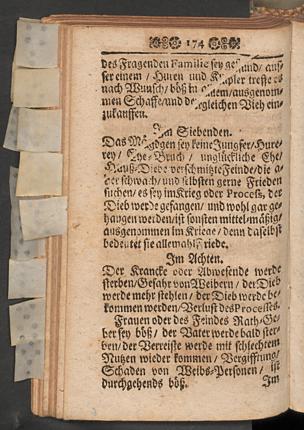 174
des Fragenden Familie sey ge und / aus-
ser einem / Huren und K pler treffe es
nach Wunsch / böß in a tem / ausgenom-
men Schaffe / und de gleichen Vieh ein-
zukauffen.
Im Siebenden.
Das Mägdgen sey keine Jungfer / Hure-
rey / Ehe-Bruch / unglückliche Ehe /
Hauß-Diebe verschmitzte Feinde / die a-
ber schwach / und selbsten gerne Frieden
suchen / es sey im Krieg oder Process, der
Dieb werde gefangen / und wohl gar ge-
hangen werden / ist sonsten mittelmäßig /
ausgenommen im Kriege / denn daselbst
bedeutet sie allemahl Friede.
Im Achten.
Der Krancke oder Abwesende werde
sterben / Gefahr von Weibern / der Dieb
werde mehr stehlen / der Dieb werde be-
kommen werden / Verlust des Processes.
Frauen oder des Feindes Rath-Ge-
ber sey böß / der Vater werde bald ster-
ben / der Verreiste werde mit schlechtem
Nutzen wieder kommen / Vergifftung /
Schaden von Weibs-Personen / ist
durchgehends böß.
Im